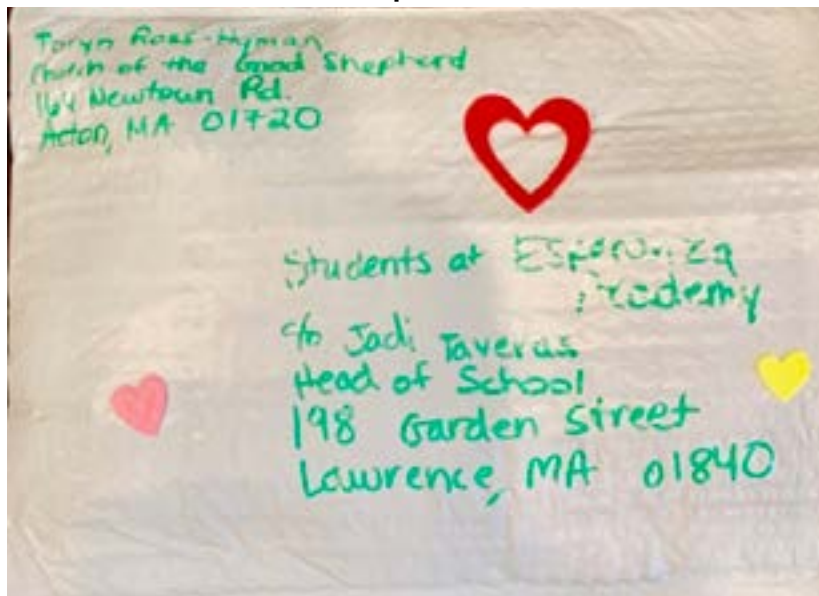 Taryn Ross-Hyman
Church of the Good Shepherd
164 Newtown Rd.
Acton, MA 01720
Students at Esperanza
Academy
c/o Jadi Taveras
Head of School
198 Garden Street
Lawrence, MA 01840